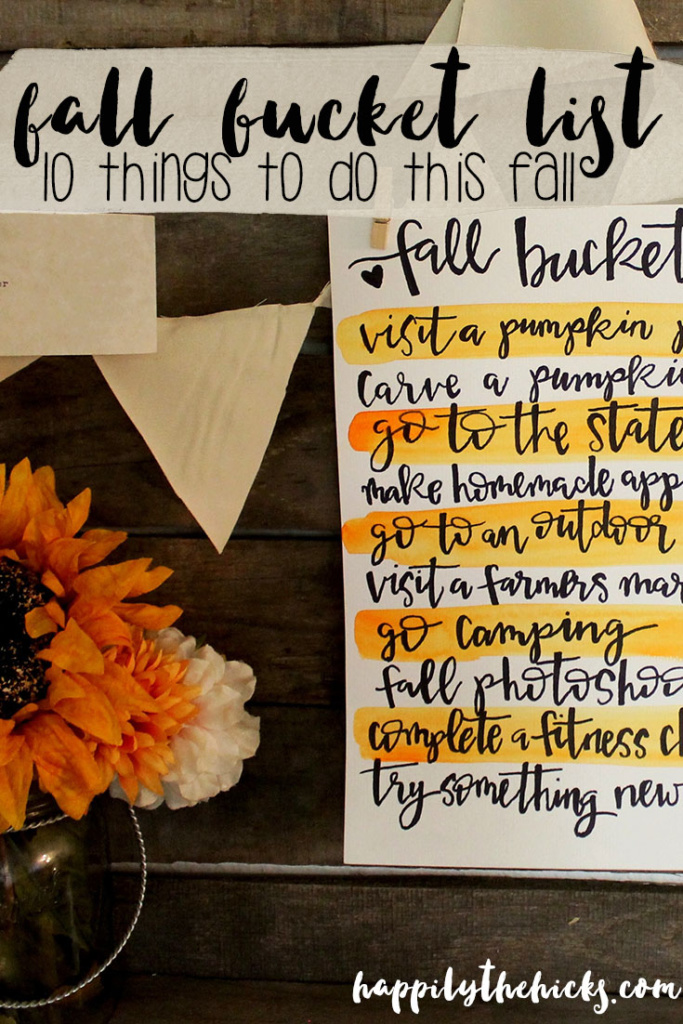 fall bucket list
10 things to do this fall
r
fall bucket
visit a pumpkin p
carve a pumpki
go to the state
make homemade app
go to an outdoor
visit a farmers mar
go camping
fall photoshoo
complete a fitness ch
try something new
happilythehicks.com